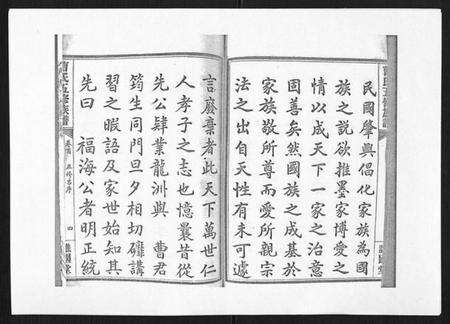 民國肇興倡化家族為國
族之說欲推墨家博愛之
情以成天下一家之治意
固善矣然國族之成基於
家族敬所尊而愛所親宗
法之出自天性有未可遽
言廢棄者此天下萬世仁
人孝子之志也憶曩昔從
先公肄業龍洲與 曹君
筠生同門旦夕相切磋講
習之暇語及家世始知其
先曰 福海公者明正統
曹氏五修族譜
卷首 五修名序
四